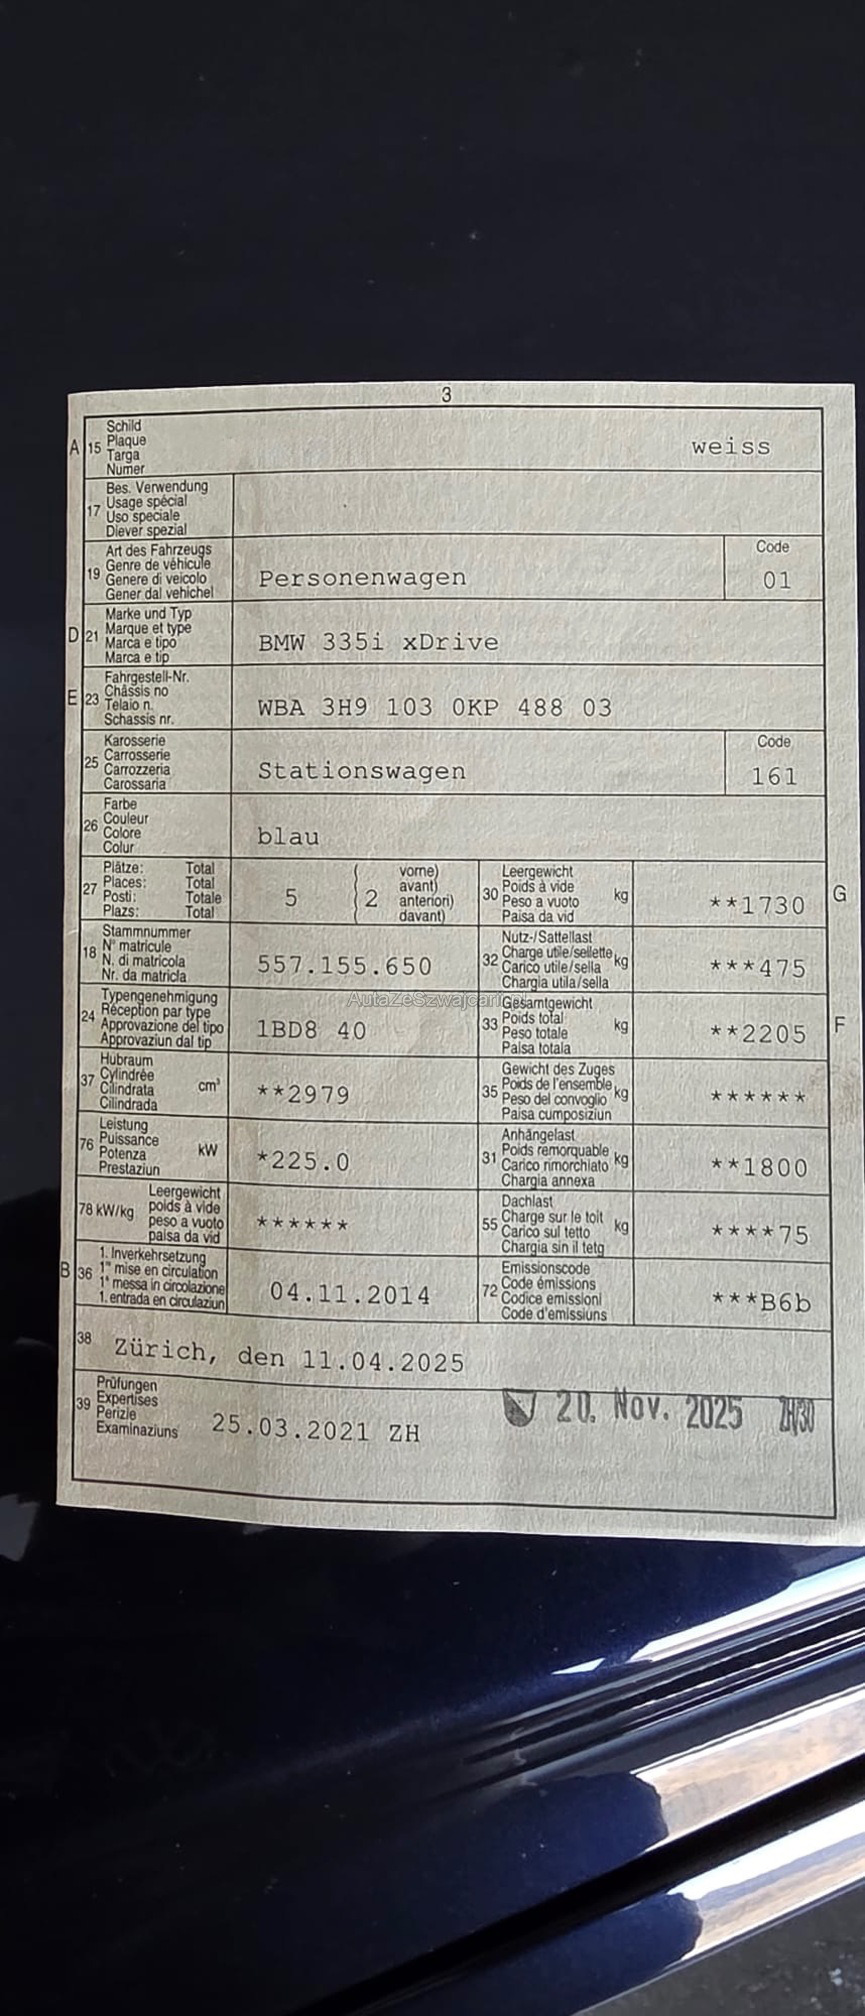 3
A 15 Schild
Plaque
Targa
Numer
weiss
17 Bes. Verwendung
Usage spécial
Uso speciale
Diever spezial
19 Art des Fahrzeugs
Genre de véhicule
Genere di veicolo
Gener dal vehichel
Personenwagen
Code
01
D 21 Marke und Typ
Marque et type
Marca e tipo
Marca e tip
BMW 335i xDrive
E 23 Fahrgestell-Nr.
Châssis no
Telaio n.
Schassis nr.
WBA 3H9 103 0KP 488 03
25 Karosserie
Carrosserie
Carrozzeria
Carossaria
Stationswagen
Code
161
26 Farbe
Couleur
Colore
Colur
blau
27 Plätze: Total
Places: Total
Posti: Totale
Plazs: Total
5
2 vorne)
avant)
anteriori)
davant)
30 Leergewicht
Poids à vide
Peso a vuoto
Paisa da vid
kg
**1730
G
18 Stammnummer
N° matricule
N. di matricola
Nr. da matricla
557.155.650
32 Nutz-/Sattellast
Charge utile/sellette
Carico utile/sella
Chargia utila/sella
kg
***475
AutaZeSzwajcarii
24 Typengenehmigung
Réception par type
Approvazione del tipo
Approvaziun dal tip
1BD8 40
33 Gesamtgewicht
Poids total
Peso totale
Paisa totala
kg
**2205
F
37 Hubraum
Cylindrée
Cilindrata
Cilindrada
cm³
**2979
35 Gewicht des Zuges
Poids de l'ensemble
Peso del convoglio
Paisa cumposiziun
kg
******
76 Leistung
Puissance
Potenza
Prestaziun
kW
*225.0
31 Anhängelast
Poids remorquable
Carico rimorchiato
Chargia annexa
kg
**1800
78 kW/kg Leergewicht
poids à vide
peso a vuoto
paisa da vid
******
55 Dachlast
Charge sur le toit
Carico sul tetto
Chargia sin il tetg
kg
****75
B 36 1. Inverkehrsetzung
1re mise en circulation
1a messa in circolazione
1. entrada en circulaziun
04.11.2014
72 Emissionscode
Code émissions
Codice emissioni
Code d'emissiuns
***B6b
38 Zürich, den 11.04.2025
39 Prüfungen
Expertises
Perizie
Examinaziuns
25.03.2021 ZH
20. Nov. 2025 ZH30